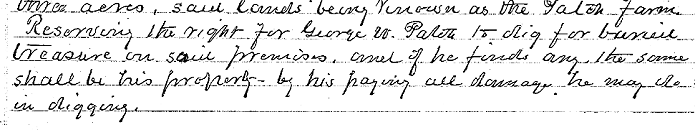 three acres, said lands being known as the Paton farm
Reserving the right for George W. Paton to dig for buried
treasure on said premises, and if he finds any, the same
shall be his property - by his paying all damage he may do
in digging.